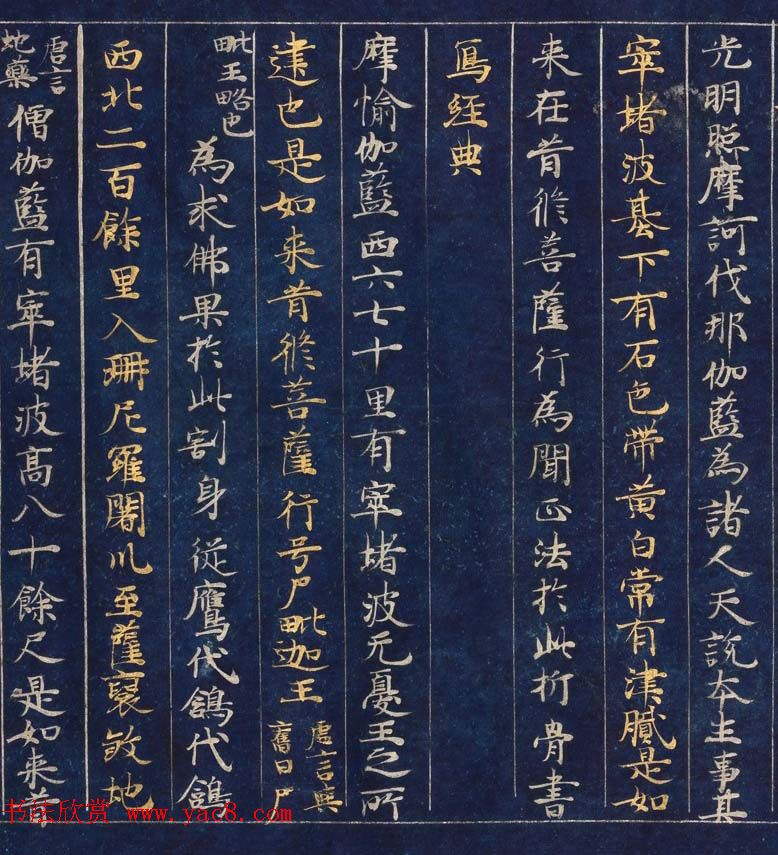 光明照摩訶伐那伽藍為諸人天說本生事其
窣堵波基下有石色帶黃白常有津膩是如
來在昔修菩薩行為聞正法於此析骨書
寫經典
摩愉伽藍西六七十里有窣堵波无憂王之所
建也是如來昔修菩薩行号尸毗迦王唐言與舊曰尸
毗王略也為求佛果於此割身從鷹代鴿代鴿
西北二百餘里入珊尼羅闍川至薩裒敘地
唐言虵藥僧伽藍有窣堵波高八十餘尺是如來昔
书法欣赏 www.yac8.com